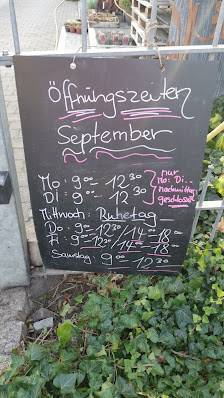 Öffnungszeiten
September
Mo: 9⁰⁰ - 12³⁰
Di: 9⁰⁰ - 12³⁰
nur
Mo: Di...
nachmittag
geschlossen
Mittwoch: Ruhetag
Do: 9⁰⁰ - 12³⁰ / 14⁰⁰ - 18⁰⁰
Fr: 9⁰⁰ - 12³⁰ / 14⁰⁰ - 18⁰⁰
Samstag: 9⁰⁰ - 12³⁰